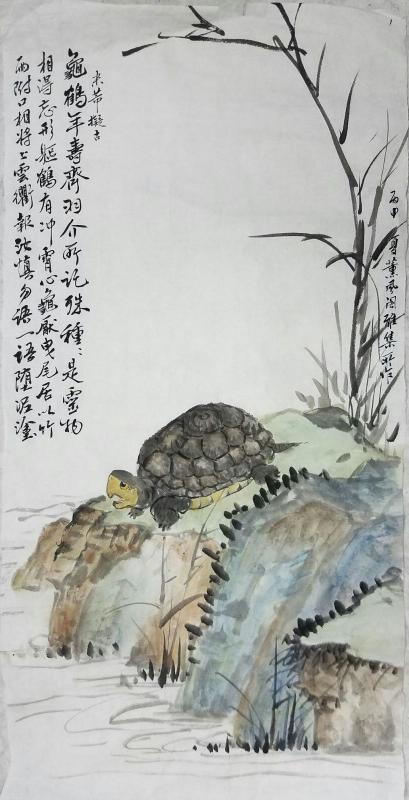 龜鶴年壽齊羽介所託殊種種是靈物
相得忘形軀鶴有沖霄心龜厭曳尾居以竹
兩附口相將上雲衢報汝慎勿語一語墮泥塗
米芾擬古
丙申 夏薰風閣雅集